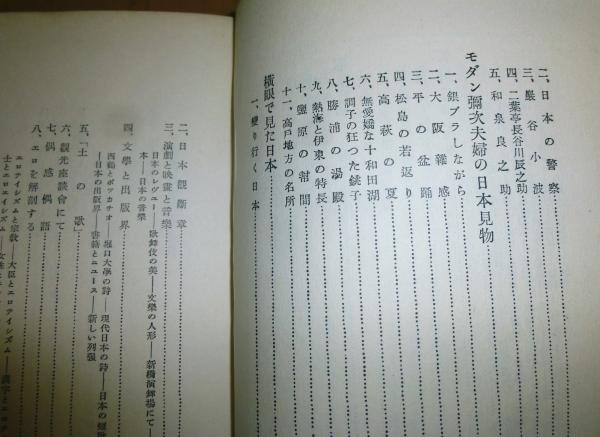 二、日本の警察
三、巖谷小波
四、二葉亭長谷川辰之助
五、和泉良之助
モダン彌次夫婦の日本見物
一、銀ブラしながら
二、大阪雜感
三、平の盆踊
四、松島の若返り
五、高萩の夏
六、無愛嬌な十和田湖
七、調子の狂つた銚子
八、勝浦の湯殿
九、熱海と伊東の特長
十、鹽原の幇間
十一、高戸地方の名所
橫眼で見た日本
一、變り行く日本
二、日本觀斷章
三、演劇と映畫と音樂
日本のレヴユー――歌舞伎の美――文樂の人形――新橋演舞場にて――日
本――日本の音樂
四、文學と出版界
西鶴とボツカチオ――堀口大學の詩――現代日本の詩――日本の短歌
――日本の出版界――書籍とニユース――新しい列强
五、「土の歌」
六、觀光座談會にて
七、偶感偶語
八、エロを解剖する
エロテイシズムと宗敎――大臣とエロテイシズム――
士とエロエイシズム――女性と